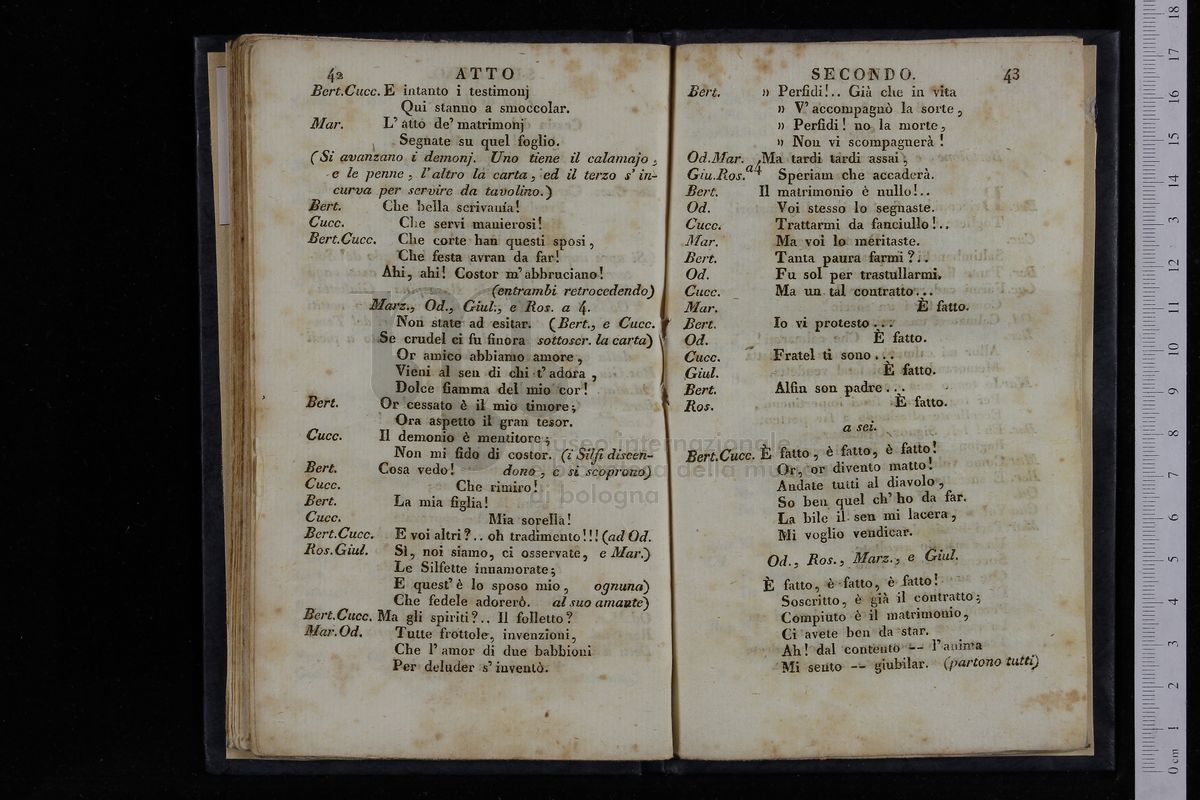 42 ATTO
Bert.Cucc. E intanto i testimonj
Qui stanno a smoccolar.
Mar. L' atto de' matrimonj
Segnate su quel foglio.
(Si avanzano i demonj. Uno tiene il calamajo,
e le penne, l'altro la carta, ed il terzo s' in-
curva per servire da tavolino.)
Bert. Che bella scrivanía!
Cucc. Che servi manierosi!
Bert.Cucc. Che corte han questi sposi,
Che festa avran da far!
Ahi, ahi! Costor m'abbruciano!
(entrambi retrocedendo)
Marz., Od., Giul., e Ros. a 4.
Non state ad esitar. (Bert., e Cucc.
Se crudel ci fu finora sottoscr. la carta)
Or amico abbiamo amore,
Vieni al sen di chi t'adora,
Dolce fiamma del mio cor!
Bert. Or cessato è il mio timore;
Ora aspetto il gran tesor.
Cucc. Il demonio è mentitore;
Non mi fido di costor. (i Silfi discen-
Bert. Cosa vedo! dono, e si scoprono)
Cucc. Che rimiro!
Bert. La mia figlia!
Cucc. Mia sorella!
Bert.Cucc. E voi altri?.. oh tradimento!!! (ad Od.
Ros.Giul. Sì, noi siamo, ci osservate, e Mar.)
Le Silfette innamorate;
E quest' è lo sposo mio, ognuna)
Che fedele adorerò. al suo amante)
Bert.Cucc. Ma gli spiriti?.. Il folletto?
Mar.Od. Tutte frottole, invenzioni,
Che l' amor di due babbioni
Per deluder s' inventò.
SECONDO. 43
Bert. » Perfidi!.. Già che in vita
» V' accompagnò la sorte,
» Perfidi! no la morte,
» Non vi scompagnerà!
Od.Mar. Ma tardi tardi assai,
Giu.Ros. a4 Speriam che accaderà.
Bert. Il matrimonio è nullo!..
Od. Voi stesso lo segnaste.
Cucc. Trattarmi da fanciullo!..
Mar. Ma voi lo meritaste.
Bert. Tanta paura farmi?..
Od. Fu sol per trastullarmi.
Cucc. Ma un tal contratto...
Mar. È fatto.
Bert. Io vi protesto...
Od. È fatto.
Cucc. Fratel ti sono...
Giul. È fatto.
Bert. Alfin son padre...
Ros. È fatto.
a sei.
Bert.Cucc. È fatto, è fatto, è fatto!
Or, or divento matto!
Andate tutti al diavolo,
So ben quel ch' ho da far.
La bile il sen mi lacera,
Mi voglio vendicar.
Od., Ros., Marz., e Giul.
È fatto, è fatto, è fatto!
Soscritto, è già il contratto;
Compiuto è il matrimonio,
Ci avete ben da star.
Ah! dal contento -- l'anima
Mi sento -- giubilar. (partono tutti)
museo internazionale
della
di bologna
0 cm 1 2 3 4 5 6 7 8 9 10 11 12 13 14 15 16 17 18